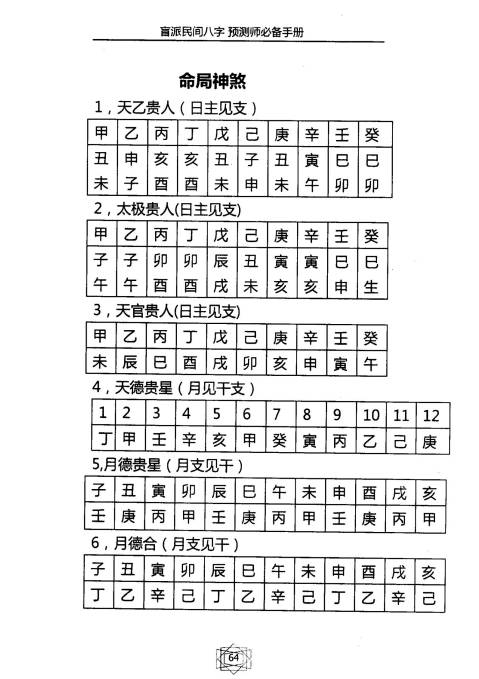 盲派民间八字 预测师必备手册
命局神煞
1，天乙贵人（日主见支）
甲 乙 丙 丁 戊 己 庚 辛 壬 癸
丑 申 亥 亥 丑 子 丑 寅 巳 巳
未 子 酉 酉 未 申 未 午 卯 卯
2，太极贵人(日主见支)
甲 乙 丙 丁 戊 己 庚 辛 壬 癸
子 子 卯 卯 辰 丑 寅 寅 巳 巳
午 午 酉 酉 戌 未 亥 亥 申 生
3，天官贵人(日主见支)
甲 乙 丙 丁 戊 己 庚 辛 壬 癸
未 辰 巳 酉 戌 卯 亥 申 寅 午
4，天德贵星（月见干支）
1 2 3 4 5 6 7 8 9 10 11 12
丁 甲 壬 辛 亥 甲 癸 寅 丙 乙 己 庚
5,月德贵星（月支见干）
子 丑 寅 卯 辰 巳 午 未 申 酉 戌 亥
壬 庚 丙 甲 壬 庚 丙 甲 壬 庚 丙 甲
6，月德合（月支见干）
子 丑 寅 卯 辰 巳 午 未 申 酉 戌 亥
丁 乙 辛 己 丁 乙 辛 己 丁 乙 辛 己
64